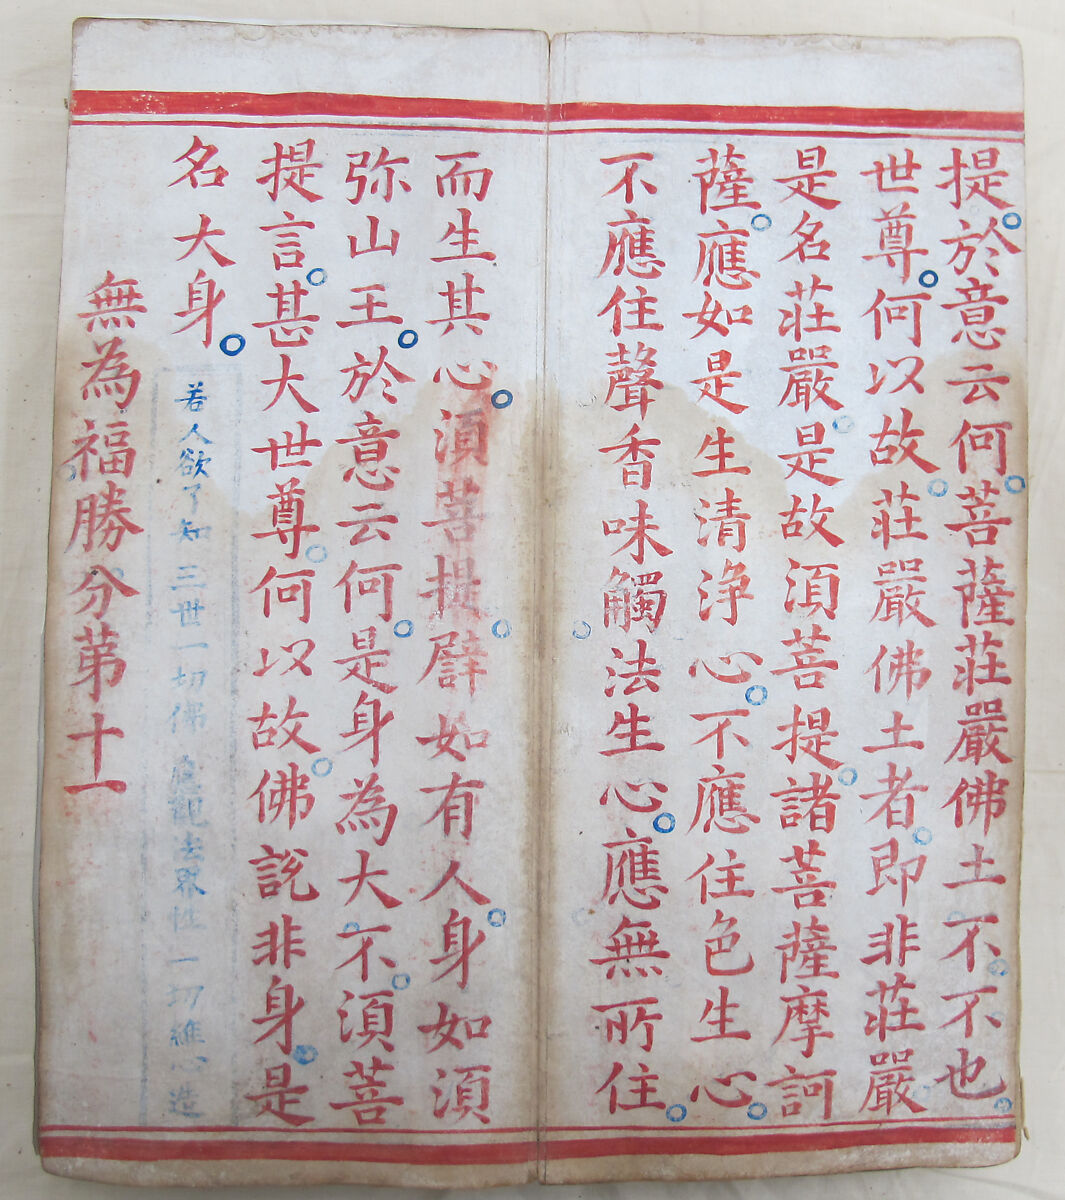 提於意云何菩薩莊嚴佛土不不也
世尊何以故莊嚴佛土者即非莊嚴
是名莊嚴是故須菩提諸菩薩摩訶
薩應如是生清淨心不應住色生心
不應住聲香味觸法生心應無所住
而生其心須菩提譬如有人身如須
弥山王於意云何是身為大不須菩
提言甚大世尊何以故佛說非身是
名大身
若人欲了知三世一切佛應觀法界性一切維心造
無為福勝分第十一